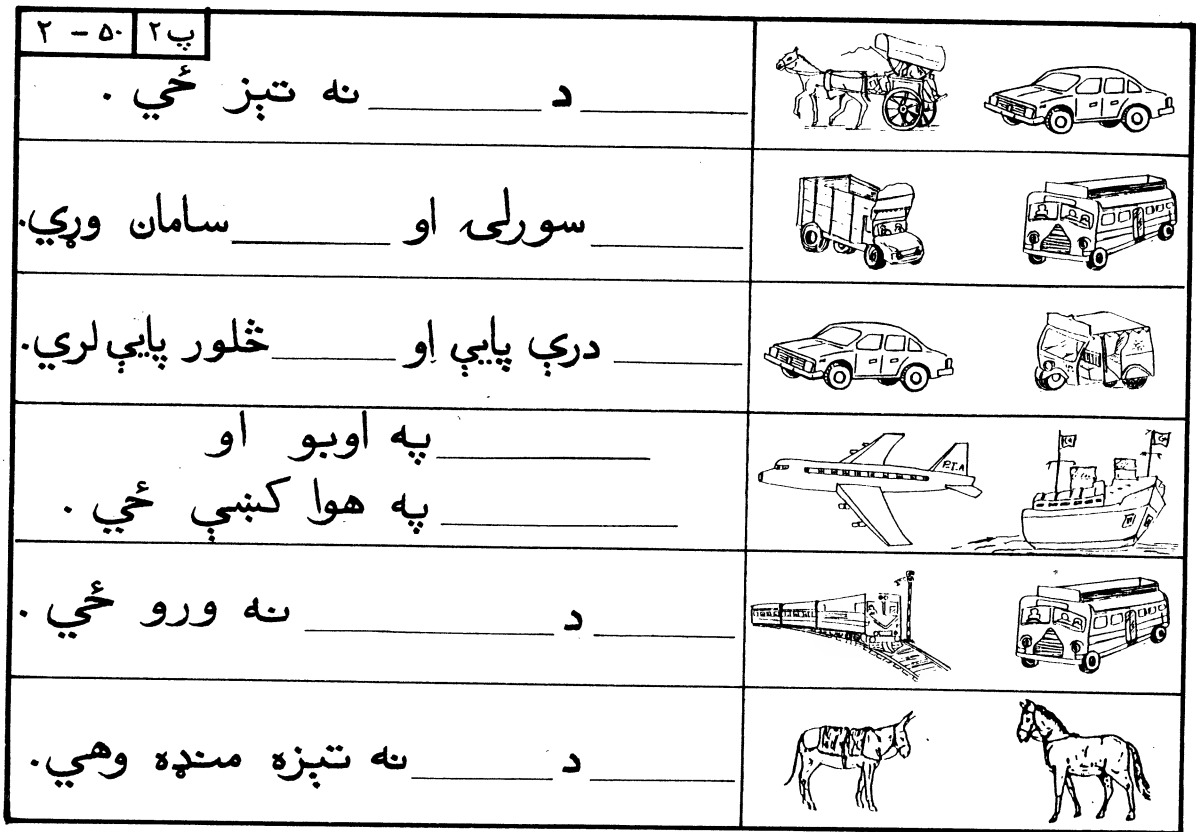 پ ۲ ۵۰ - ۲
________ د ________ نه تېز ځي .
________ سورلۍ او ________ سامان وړي.
________ درې پايې او ________ څلور پايې لري.
________ په اوبو او
________ په هوا کښې ځي .
P.I.A
________ د ________ نه ورو ځي .
________ د ________ نه تېزه منډه وهي.